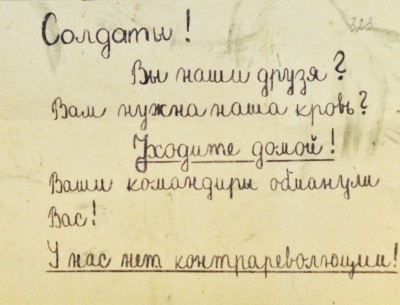 Солдаты!
323
Вы наши друзя?
Вам нужна наша кровь?
Уходите домой!
Ваши командиры обманули
Вас!
У нас нет контрареволюции!